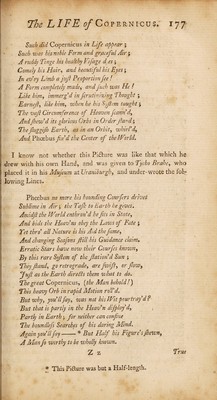 The LIFE of COPERNICUS. 177
Such did Copernicus in Life appear;
Such was his noble Form and graceful Air;
A ruddy Tinge his healthy Visage dies;
Comely his Hairs, and beautiful his Eyes;
In ev'ry Limb a just Proportion see!
A Form completely made, and such was He!
Like him, immerg'd in scrutinizing Thought;
Earnest, like him, when he his System taught;
The vast Circumference of Heaven scann'd,
And shew'd its glorious Orbs in Order stand;
The sluggish Earth, as in an Orbit, whirl'd,
And Phœbus fix'd the Center of the World.
I know not whether this Picture was like that which he
drew with his own Hand, and was given to Tycho Brahe, who
placed it in his Museum at Uraniburgh, and under-wrote the fol-
lowing Lines.
Phœbus no more his bounding Coursers drives
Sublime in Air; the Task to Earth he gives,
Amidst the World enthron'd he sits in State,
And bids the Heav'ns obey the Laws of Fate;
Yet thro' all Nature is his Aid the same,
And changing Seasons still his Guidance claim.
Erratic Stars have now their Courses known,
By this rare System of the station'd Sun;
They stand, go retrograde, are swift, or slow,
Just as the Earth directs them what to do.
The great Copernicus, (the Man behold!)
This heavy Orb in rapid Motion roll'd.
But why, you'll say, was not his Whole pourtray'd?
But that is partly in the Heav'n display'd,
Partly in Earth; for neither can confine
The boundless Searches of his daring Mind.
Again you'll say— * But Half his Figure's shewn,
A Man so worthy to be wholly known.
Z z True
* This Picture was but a Half-length.